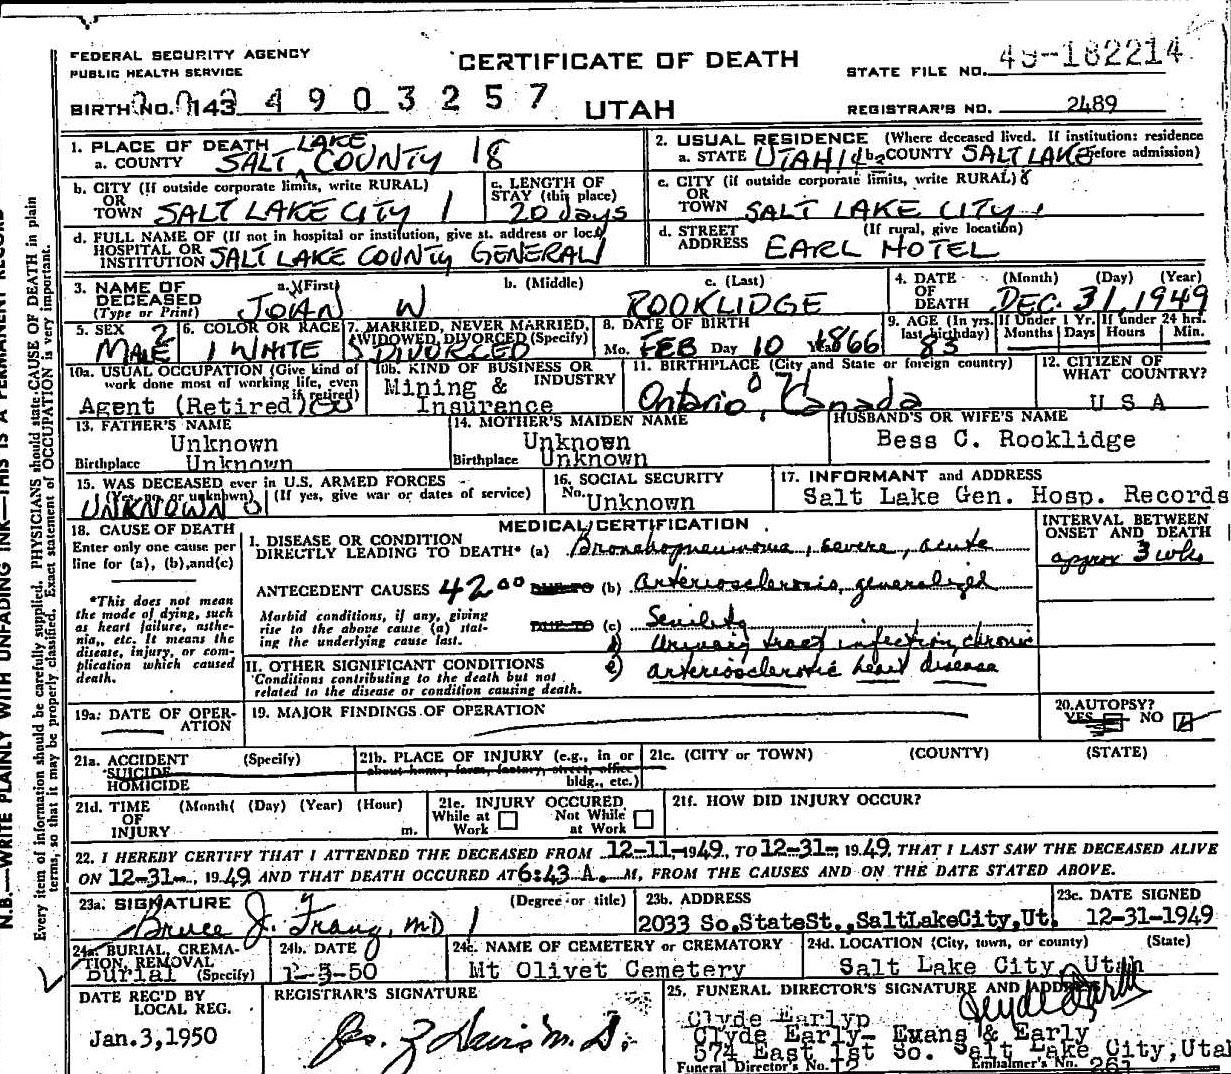 FEDERAL SECURITY AGENCY
PUBLIC HEALTH SERVICE
CERTIFICATE OF DEATH
STATE FILE NO. 49-182214
BIRTH NO. 143 4903257
UTAH
REGISTRAR'S NO. 2489
1. PLACE OF DEATH
a. COUNTY SALT LAKE COUNTY 18
2. USUAL RESIDENCE (Where deceased lived. If institution: residence before admission)
a. STATE UTAH b. COUNTY SALT LAKE
b. CITY (If outside corporate limits, write RURAL)
OR
TOWN SALT LAKE CITY 1
c. LENGTH OF
STAY (this place)
20 days
c. CITY (if outside corporate limits, write RURAL)
OR
TOWN SALT LAKE CITY
d. FULL NAME OF (If not in hospital or institution, give st. address or loc.)
HOSPITAL OR
INSTITUTION SALT LAKE COUNTY GENERAL
d. STREET (If rural, give location)
ADDRESS EARL HOTEL
3. NAME OF
DECEASED
(Type or Print)
a. (First) b. (Middle) c. (Last)
JOHN W ROOKLIDGE
4. DATE
OF
DEATH
(Month) (Day) (Year)
DEC. 31, 1949
5. SEX 2
MALE
6. COLOR OR RACE
1 WHITE
7. MARRIED, NEVER MARRIED,
WIDOWED, DIVORCED (Specify)
DIVORCED
8. DATE OF BIRTH
Mo. FEB Day 10 Year 1866
9. AGE (In yrs. last birthday)
83
If Under 1 Yr.
Months Days
If under 24 hrs.
Hours Min.
10a. USUAL OCCUPATION (Give kind of
work done most of working life, even
if retired)
Agent (Retired)
10b. KIND OF BUSINESS OR
INDUSTRY
Mining &
Insurance
11. BIRTHPLACE (City and State or foreign country)
Ontario, Canada
12. CITIZEN OF
WHAT COUNTRY?
U S A
13. FATHER'S NAME
Unknown
Birthplace Unknown
14. MOTHER'S MAIDEN NAME
Unknown
Birthplace Unknown
HUSBAND'S OR WIFE'S NAME
Bess C. Rooklidge
15. WAS DECEASED ever in U.S. ARMED FORCES
(Yes, no, or unknown) (If yes, give war or dates of service)
UNKNOWN
16. SOCIAL SECURITY
No. Unknown
17. INFORMANT and ADDRESS
Salt Lake Gen. Hosp. Records
18. CAUSE OF DEATH
Enter only one cause per
line for (a), (b), and (c)
*This does not mean
the mode of dying, such
as heart failure, asthe-
nia, etc. It means the
disease, injury, or com-
plication which caused
death.
MEDICAL CERTIFICATION
I. DISEASE OR CONDITION
DIRECTLY LEADING TO DEATH* (a) Bronchopneumonia, severe, acute
ANTECEDENT CAUSES 4200 DUE TO (b) arteriosclerosis, generalized
Morbid conditions, if any, giving
rise to the above cause (a) stat-
ing the underlying cause last.
DUE TO (c) Senility
d) Urinary tract infection, chronic
II. OTHER SIGNIFICANT CONDITIONS
Conditions contributing to the death but not
related to the disease or condition causing death.
e) arteriosclerotic heart disease
INTERVAL BETWEEN
ONSET AND DEATH
approx 3 wks
19a. DATE OF OPER-
ATION
19. MAJOR FINDINGS OF OPERATION
20. AUTOPSY?
YES NO
21a. ACCIDENT (Specify)
SUICIDE
HOMICIDE
21b. PLACE OF INJURY (e.g., in or
about home, farm, factory, street, office
bldg., etc.)
21c. (CITY or TOWN) (COUNTY) (STATE)
21d. TIME (Month) (Day) (Year) (Hour)
OF
INJURY m.
21e. INJURY OCCURED
While at Work
Not While at Work
21f. HOW DID INJURY OCCUR?
22. I HEREBY CERTIFY THAT I ATTENDED THE DECEASED FROM 12-11-1949, TO 12-31-, 1949, THAT I LAST SAW THE DECEASED ALIVE
ON 12-31-, 1949 AND THAT DEATH OCCURED AT 6:43 A. M, FROM THE CAUSES AND ON THE DATE STATED ABOVE.
23a. SIGNATURE (Degree or title)
Bruce J. MD
23b. ADDRESS
2033 So.StateSt.,SaltLakeCity,Ut.
23c. DATE SIGNED
12-31-1949
24a. BURIAL, CREMA-
TION, REMOVAL
Burial (Specify)
24b. DATE
1-5-50
24c. NAME OF CEMETERY or CREMATORY
Mt Olivet Cemetery
24d. LOCATION (City, town, or county) (State)
Salt Lake City Utah
DATE REC'D BY
LOCAL REG.
Jan.3,1950
REGISTRAR'S SIGNATURE
25. FUNERAL DIRECTOR'S SIGNATURE AND ADDRESS
Clyde Early
Clyde Early- Evans & Early
574 East 1st So. Salt Lake City,Utah
Funeral Director's No. 12 Embalmer's No. 261
N.B.—WRITE PLAINLY WITH UNFADING INK—THIS IS A PERMANENT RECORD
Every item of information should be carefully supplied. PHYSICIANS should state CAUSE OF DEATH in plain
terms, so that it may be properly classified. Exact statement of OCCUPATION is very important.